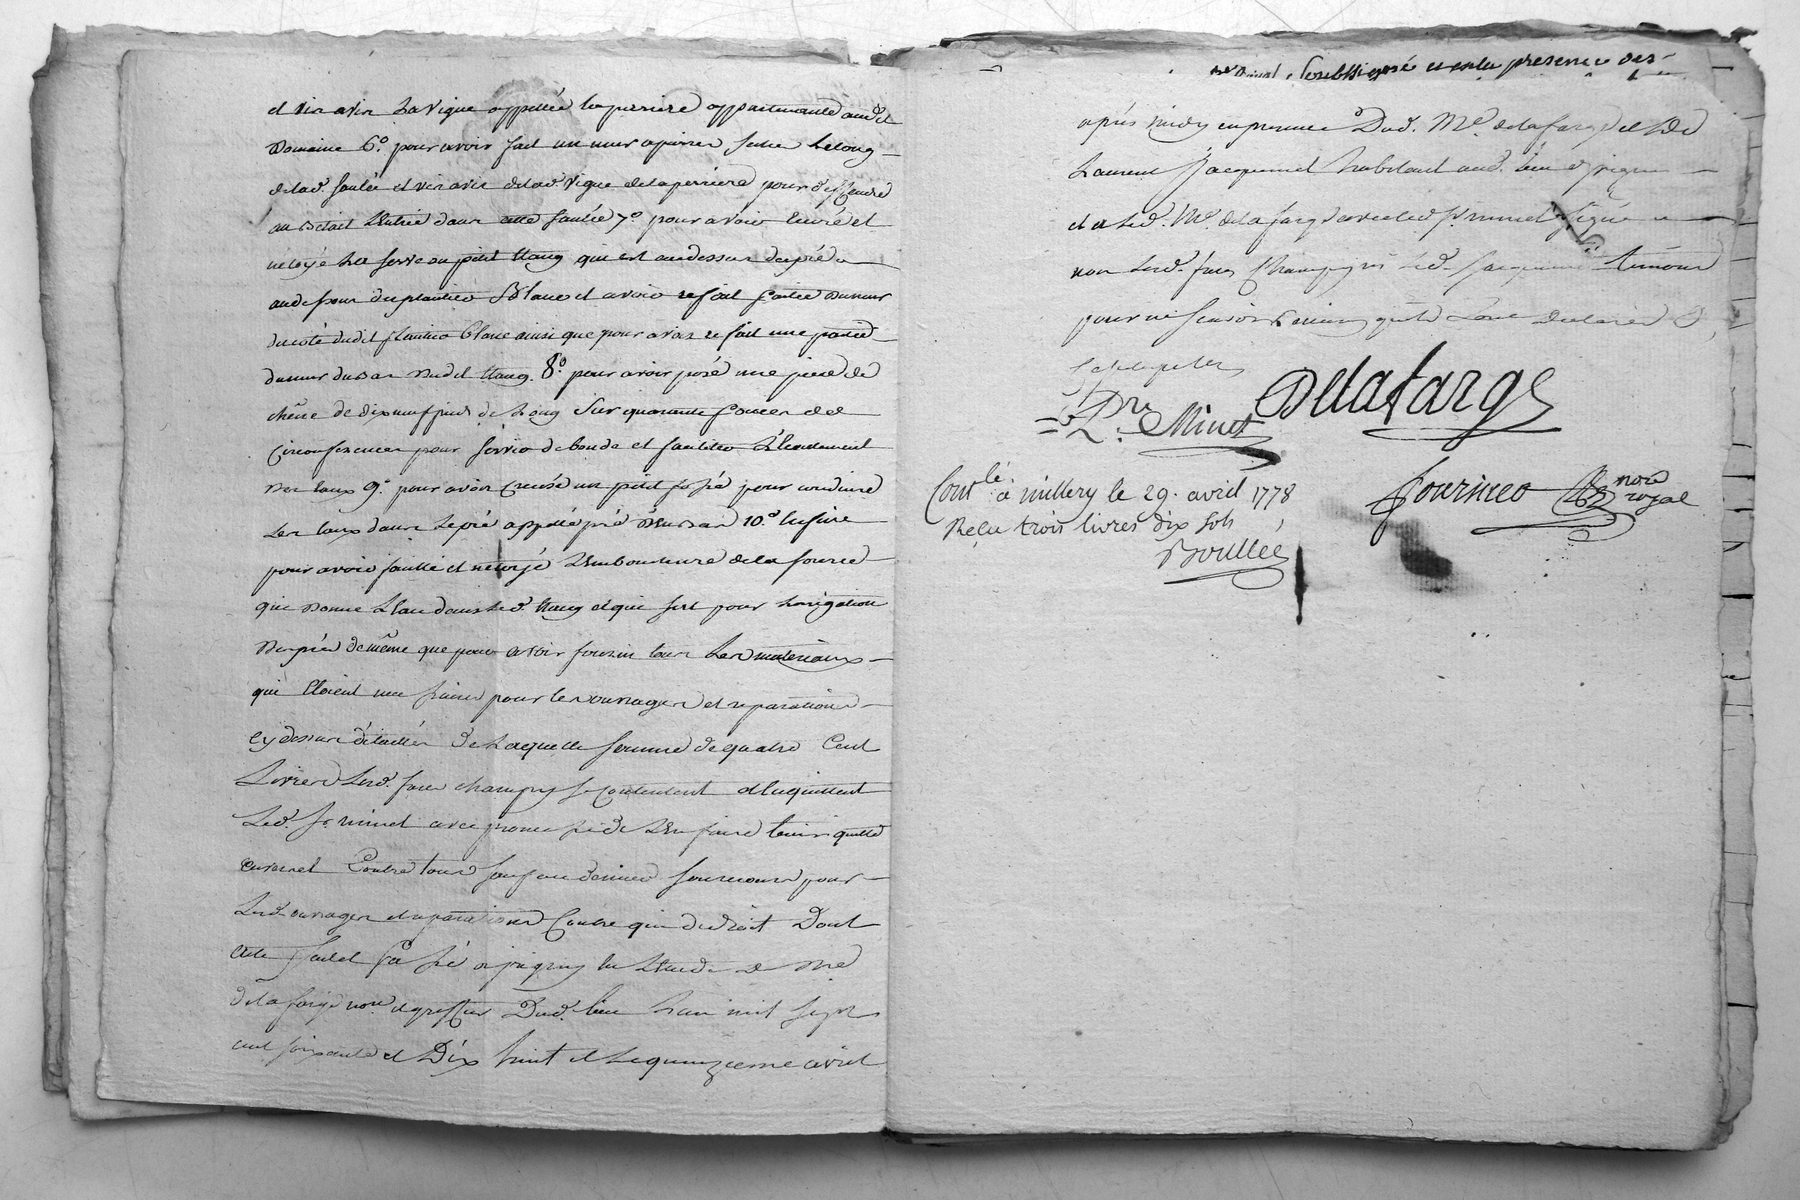 et vis a vis la vigne appellée la perriere appartenante audit
Domaine 6.º pour avoir fait un mur a pierre seche le long
de lad. saulée et vis a vis de lad. vigne de la perriere pour deffendre
au Betail l'entrée dans cette saulée 7º pour avoir curé et
netoyé la serve ou petit Etang qui est au dessus du pré
au dessous du plantier Blanc et avoir refait partie du mur
du coté dudit plantier Blanc ainsi que pour avoir refait une partie
du mur du Bas dudit Etang. 8º pour avoir posé une piece de
chêne de dix neuf pieds de Long sur quarante pouces de
Circonference pour servir de bonde et faciliter l'Ecoulement
des Eaux 9.º pour avoir Creusé un petit fossé pour conduire
les Eaux dans le pré appellé pré Dessus 10.º Enfin
pour avoir fouillé et netoyé L'embouchure de la source
qui Donne L'eau dans led. Etang et qui sert pour L'arrigation
du pré de même que pour avoir fourni tous les materiaux
qui Etoient necessaires pour les ouvrages et reparations
cy dessus détaillés de Laquelle somme de quatre Cent
Livres Lesd. freres champin se Contentent et En quittent
Led. Sr. minet avec promesse de L'en faire tenir quitte
envers et Contre tous sauf au dernier son recours pour
Lesd. ouvrages et reparations Contre qui de droit Dont
acte fait et Passé a jrigny En L'Etude de Me
Delafarge nore. et greffier Dud. lieu L'an mil sept
cent soixante et Dix huit et Le quinzieme avril
soubssigné et en la presence des
après midy en presence Dud. Me. Delafarge et De
Laurent Jacquemet habitant aud. lieu d'jrigny
et a Led. Me. delafarge avec led. Sr. minet signé
non Lesd. freres Champin Led. Jacquemet temoins
pour ne sçavoir Ecrire qu'ils L'ont Declaré De
Minet Delafarge
Fournier nore royal
Conlé. a millery le 29. avril 1778
Reçu trois livres dix sols
Boullée